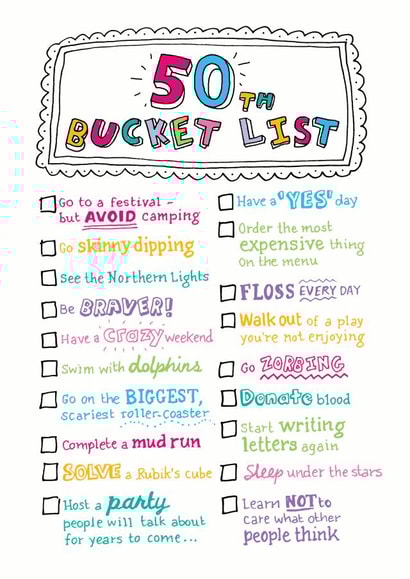 50TH
BUCKET LIST
Go to a festival -
but AVOID camping
Go skinny dipping
See the Northern Lights
Be BRAVER!
Have a crazy weekend
Swim with dolphins
Go on the BIGGEST,
scariest roller-coaster
Complete a mud run
SOLVE a Rubik's cube
Host a party
people will talk about
for years to come...
Have a 'YES' day
Order the most
expensive thing
on the menu
FLOSS EVERY DAY
Walk out of a play
you're not enjoying
Go ZORBING
Donate blood
Start writing
letters again
Sleep under the stars
Learn NOT to
care what other
people think